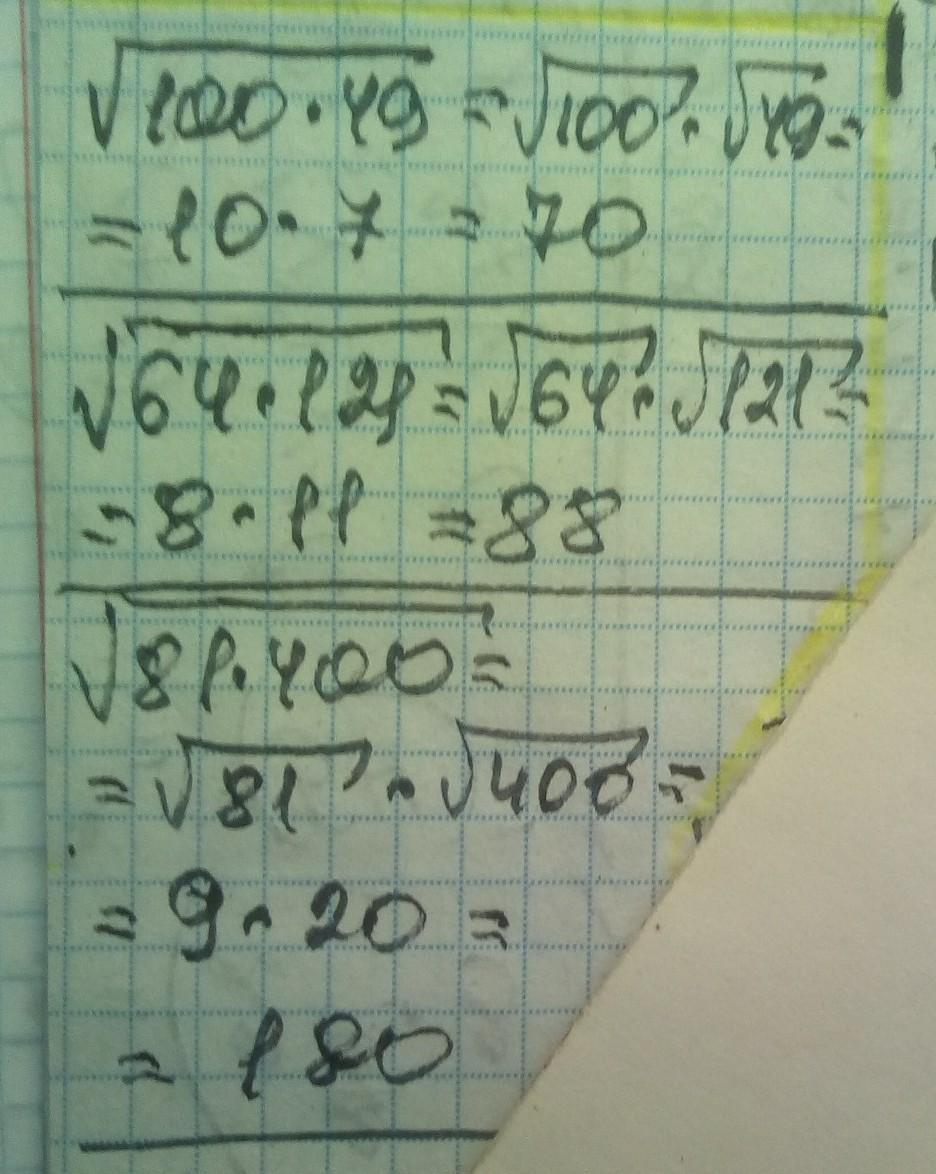 √100·49 = √100 · √49 =
= 10 · 7 = 70
√64·121 = √64 · √121 =
= 8 · 11 = 88
√81·400 =
= √81 · √400 =
= 9 · 20 =
= 180